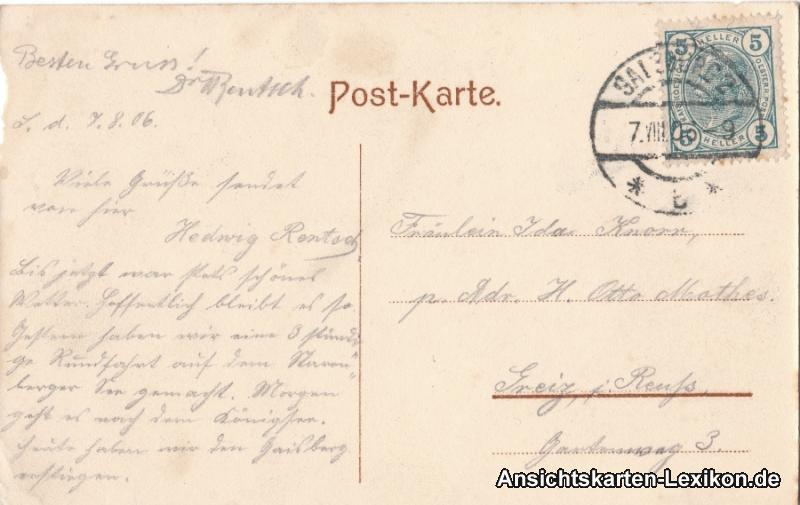 Besten Gruss!
Dr Rentsch.
S. d. 7.8.06.
Post-Karte.
5 HELLER 5
5 HELLER 5
SALZBURG 2
7.VIII.06 -9
* b *
Viele Grüße sendet
von hier
Hedwig Rentsch
Bis jetzt war stets schönes
Wetter. Hoffentlich bleibt es so
Gestern haben wir eine 3 stündi-
ge Rundfahrt auf dem Starn-
berger See gemacht. Morgen
geht es nach dem Königsee.
heute haben wir den Gaisberg
erstiegen.
Fräulein Ida Knorr,
p. Adr. H. Otto Mathes.
Greiz, j. Reuss,
Gartenweg 3.
Ansichtskarten-Lexikon.de